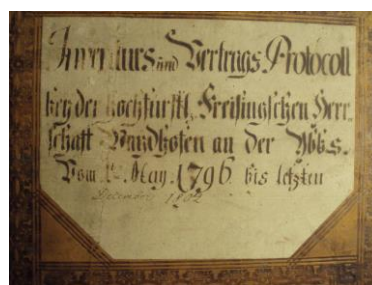 Inventurs und Vertrags Protocoll
bey der hochfürstl. Freisingschen Herr-
schaft Waidhofen an der Ybbs.
Vom May 1796 bis letzten
December 1802